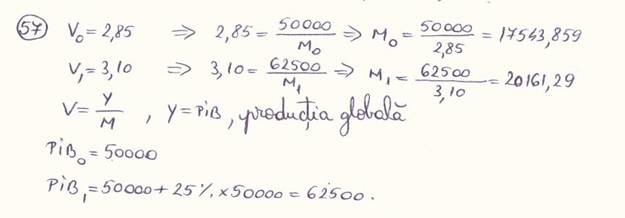 57 V₀ = 2,85 ⇒ 2,85 = 50000/M₀ ⇒ M₀ = 50000/2,85 = 17543,859
V₁ = 3,10 ⇒ 3,10 = 62500/M₁ ⇒ M₁ = 62500/3,10 = 20161,29
V = Y/M , Y = PiB, producția globală
PiB₀ = 50000
PiB₁ = 50000 + 25 % x 50000 = 62500.